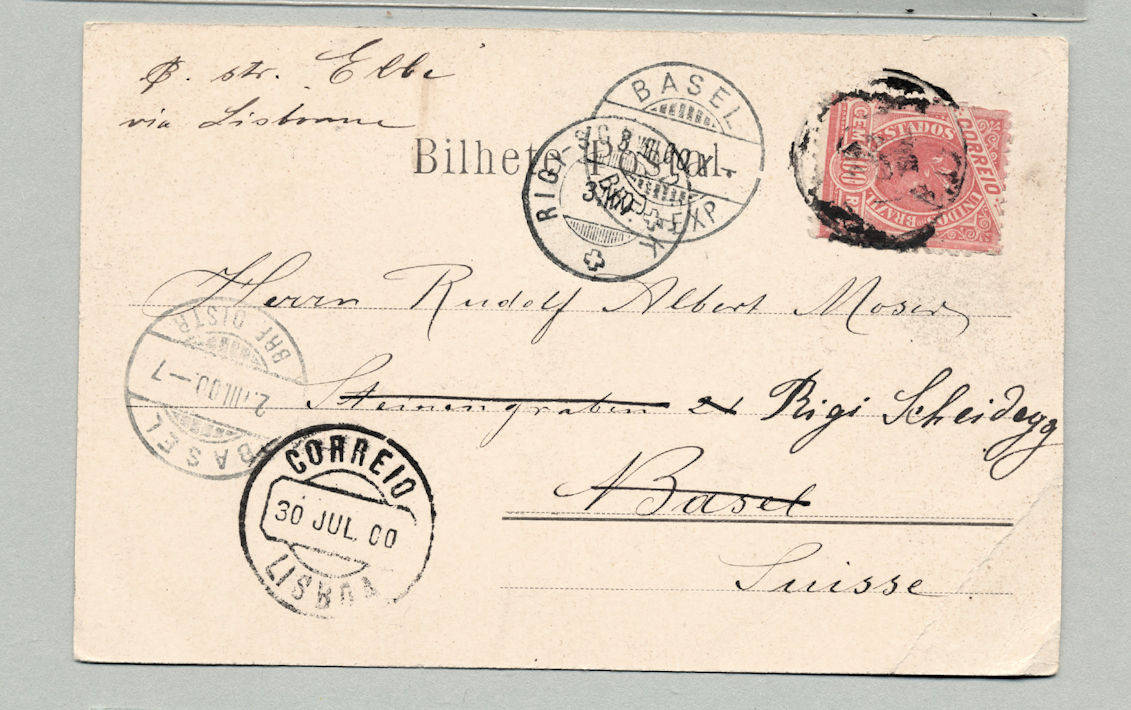 p. str. Elbe
via Lisbonne
Bilhete Postal
BASEL
BRF. EXP.
RIGI
3.VIII.00
CORREIO
ESTADOS
UNIDO BRAZIL
CEM
100
Herrn Rudolf Albert Moser
BRF. DISTR.
2.VIII.00.—7
BASEL
Steinengraben Rigi Scheidegg
Basel
Suisse
CORREIO
30 JUL. 00
LISBOA